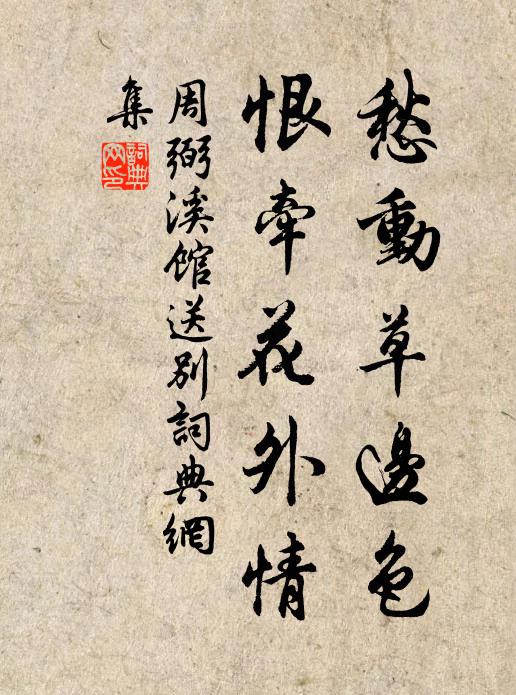 愁動草邊色
恨牽花外情
周弼溪館送別詞典網
集
詞典
网印